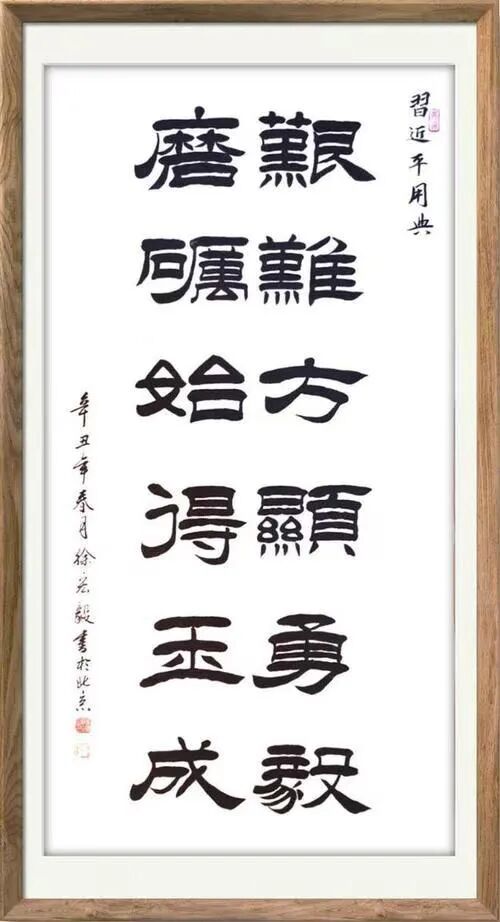 習近平用典
艱難方顯勇毅
磨礪始得玉成
辛丑年春月徐宏毅書於北京